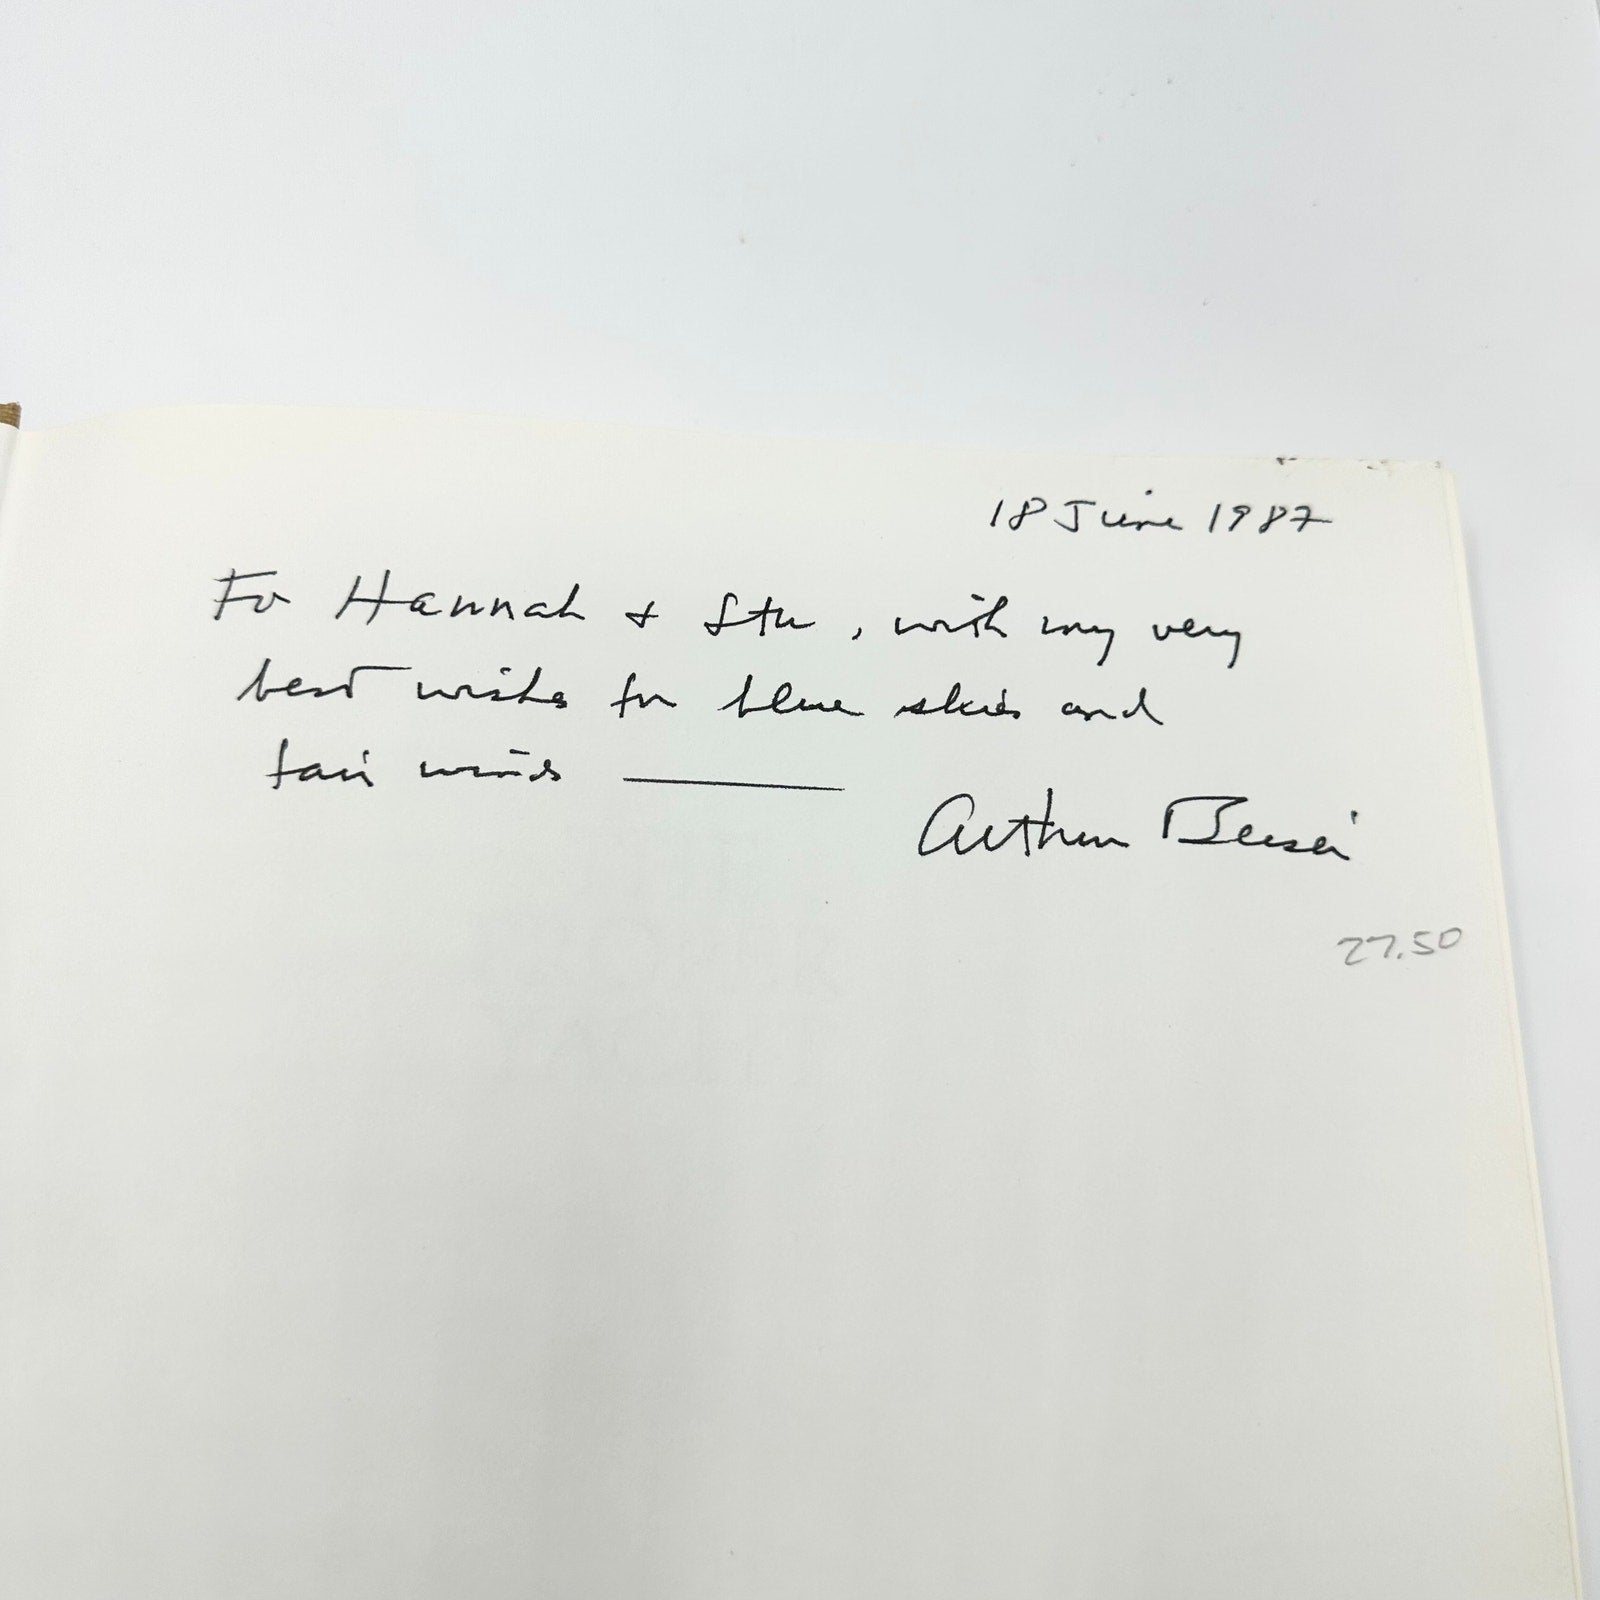 18 June 1987
To Hannah + Stu, with my very
best wishes for blue skies and
fair winds ———
Arthur Beiser
27.50